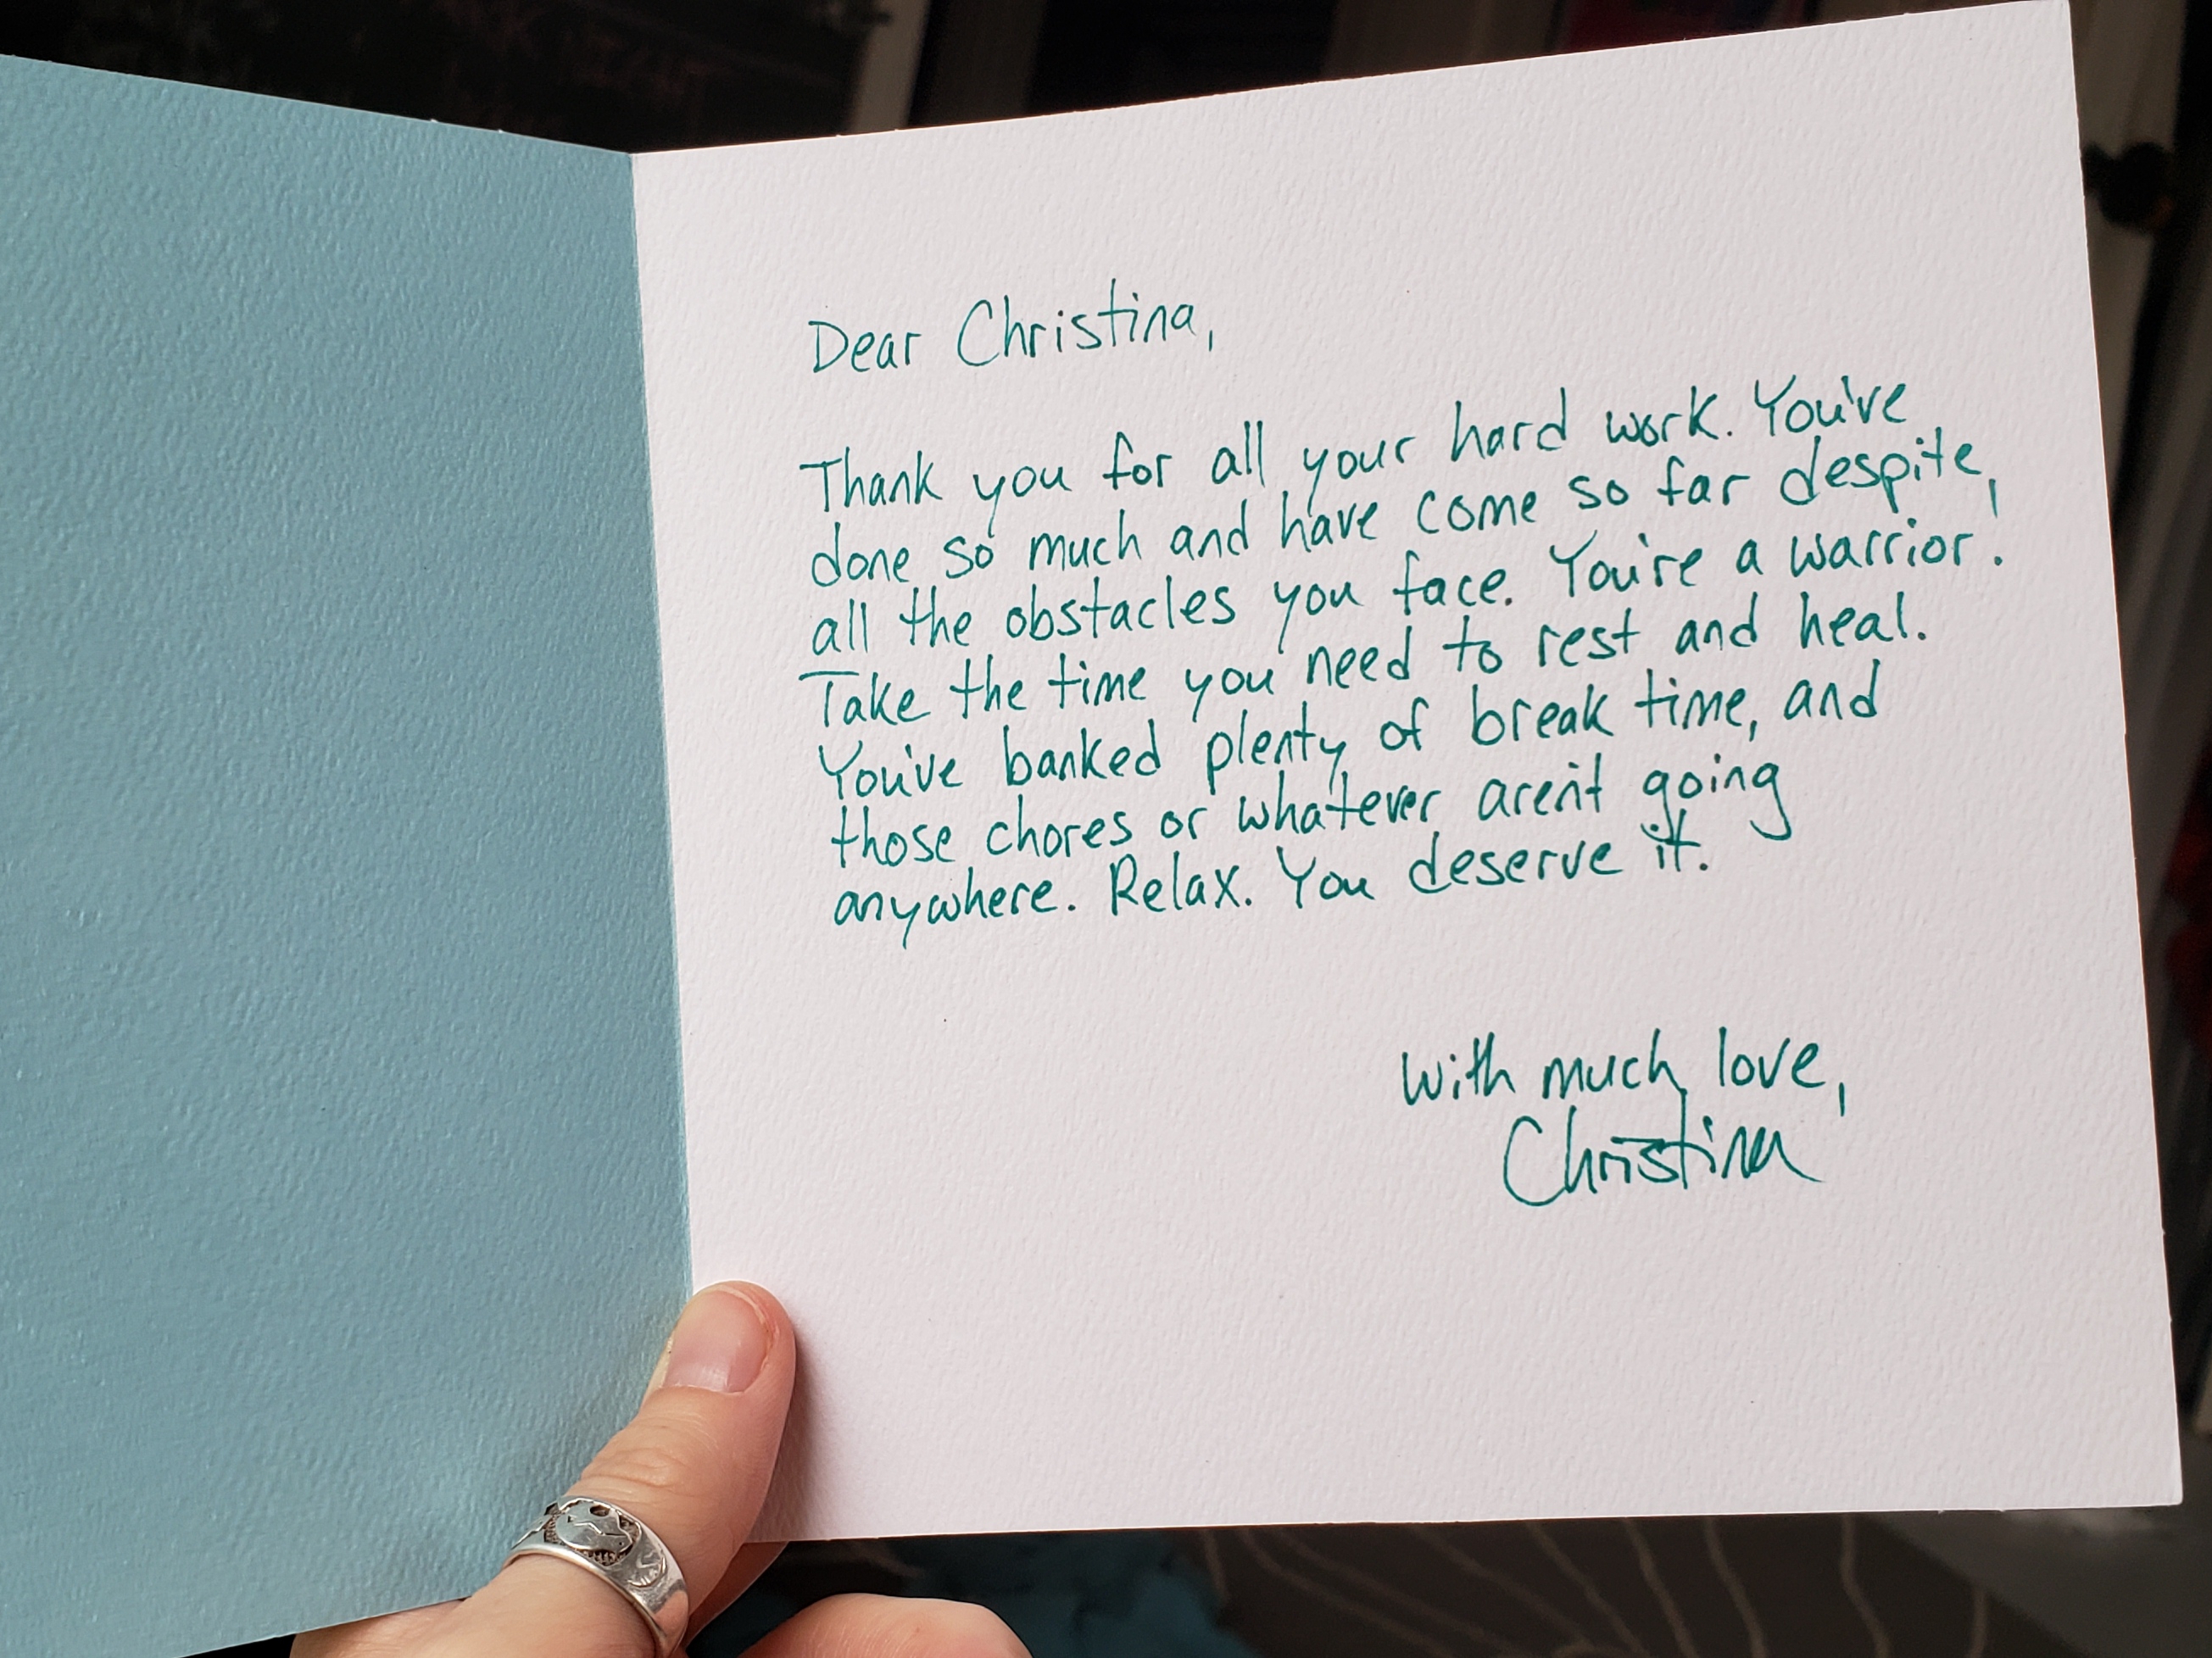 Dear Christina,
Thank you for all your hard work. You've
done so much and have come so far despite
all the obstacles you face. You're a warrior!
Take the time you need to rest and heal.
You've banked plenty of break time, and
those chores or whatever aren't going
anywhere. Relax. You deserve it.
With much love,
Christina